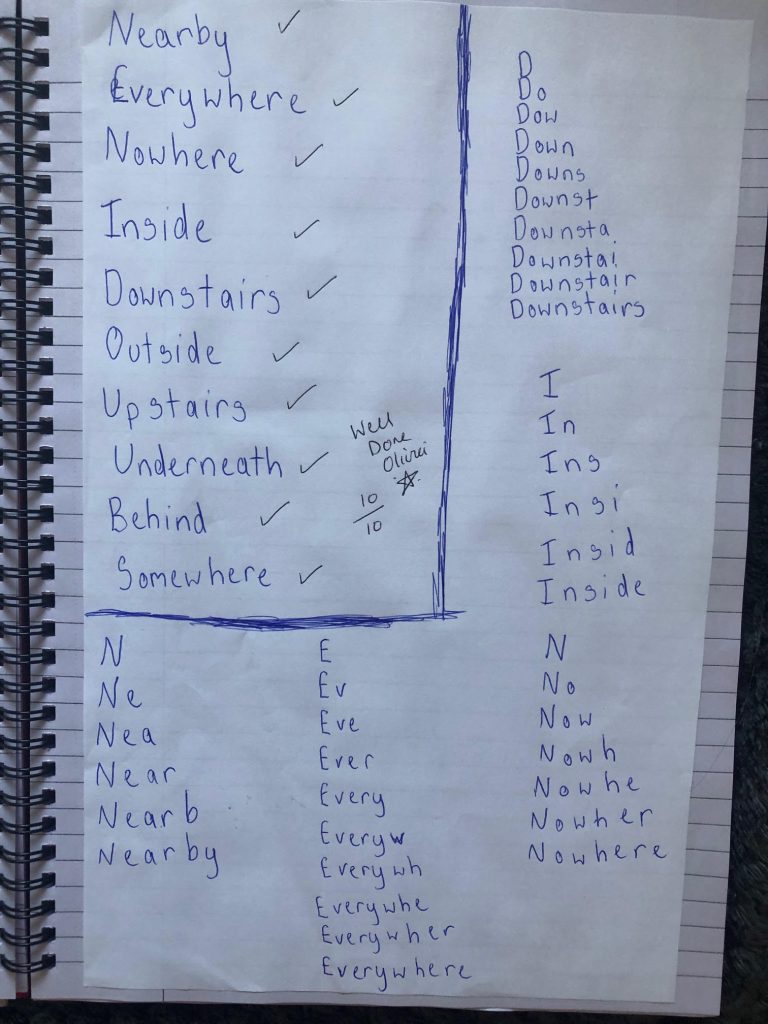 Nearby
Everywhere
Nowhere
Inside
Downstairs
Outside
Upstairs
Underneath
Behind
Somewhere
Well
Done
10
10
D
Do
Dow
Down
Downs
Downst
Downsta
Downstai
Downstair
Downstairs
I
In
Ins
Insi
Insid
Inside
N
Ne
Nea
Near
Nearb
Nearby
E
Ev
Eve
Ever
Every
Everyw
Everywh
Everywhe
Everywher
Everywhere
N
No
Now
Nowh
Nowhe
Nowher
Nowhere